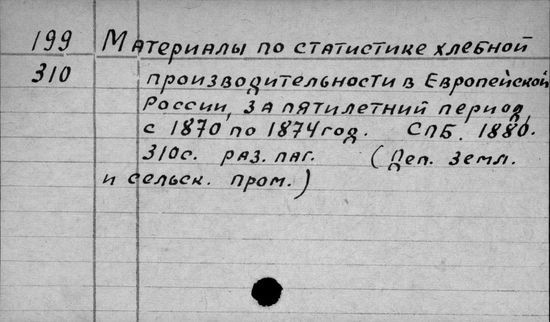 199 Материалы по статистике хлебной
310 производительности в Европейской
России, за пятилетний период,
с 1870 по 1874 год. СПБ. 1880.
310с. раз. паг. (Деп. земл.
и сельск. пром.)